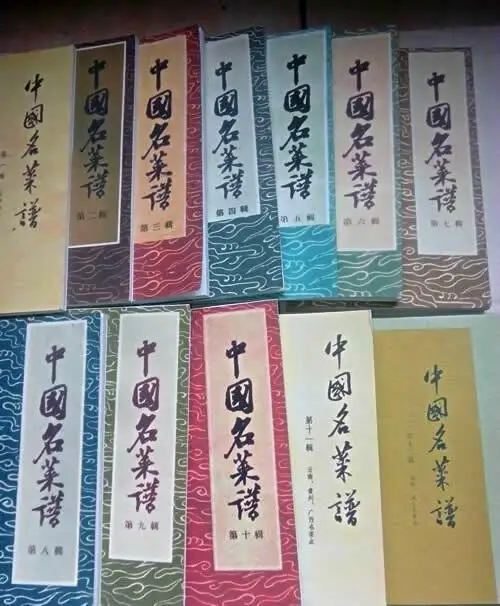 中國名菜譜
中國名菜谱
第二輯
中國名菜谱
第三輯
中國名菜谱
第四輯
中國名菜谱
第五輯
中國名菜谱
第六輯
中國名菜谱
第七輯
中國名菜谱
第八輯
中國名菜谱
第九輯
中國名菜谱
第十輯
中國名菜譜
第十一輯
云南、貴州、广西名菜点
中國名菜譜